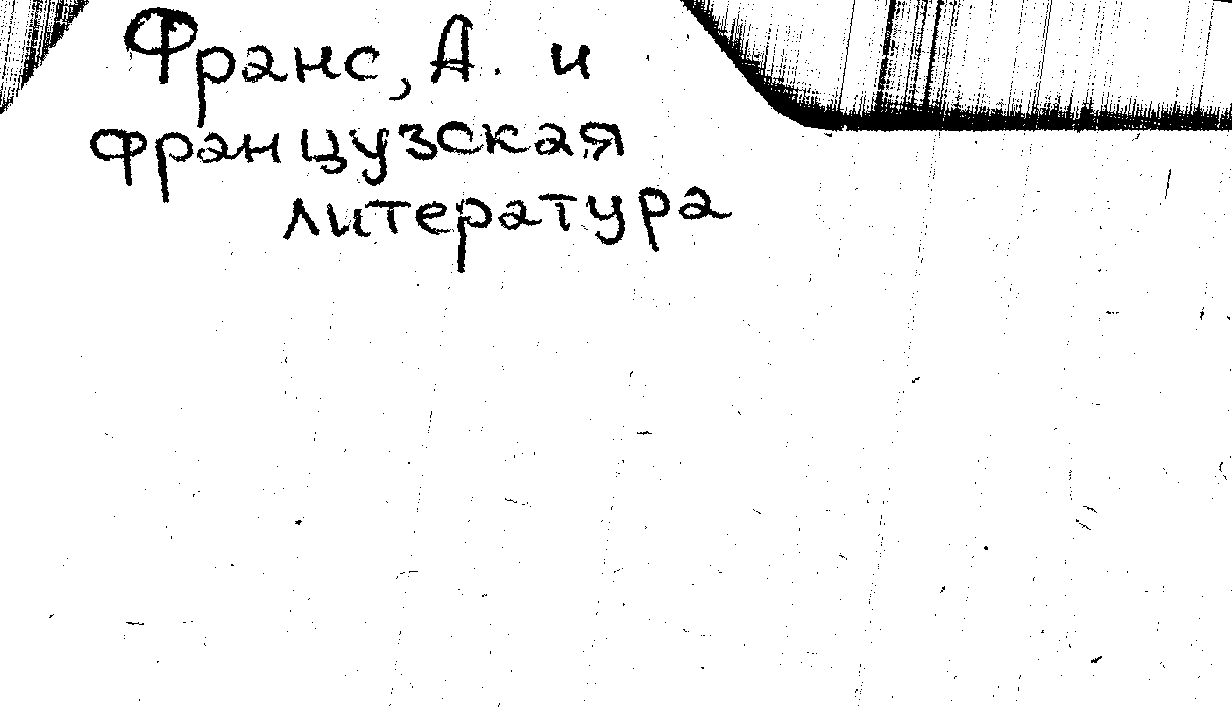 Франс, А. и
французская
литература